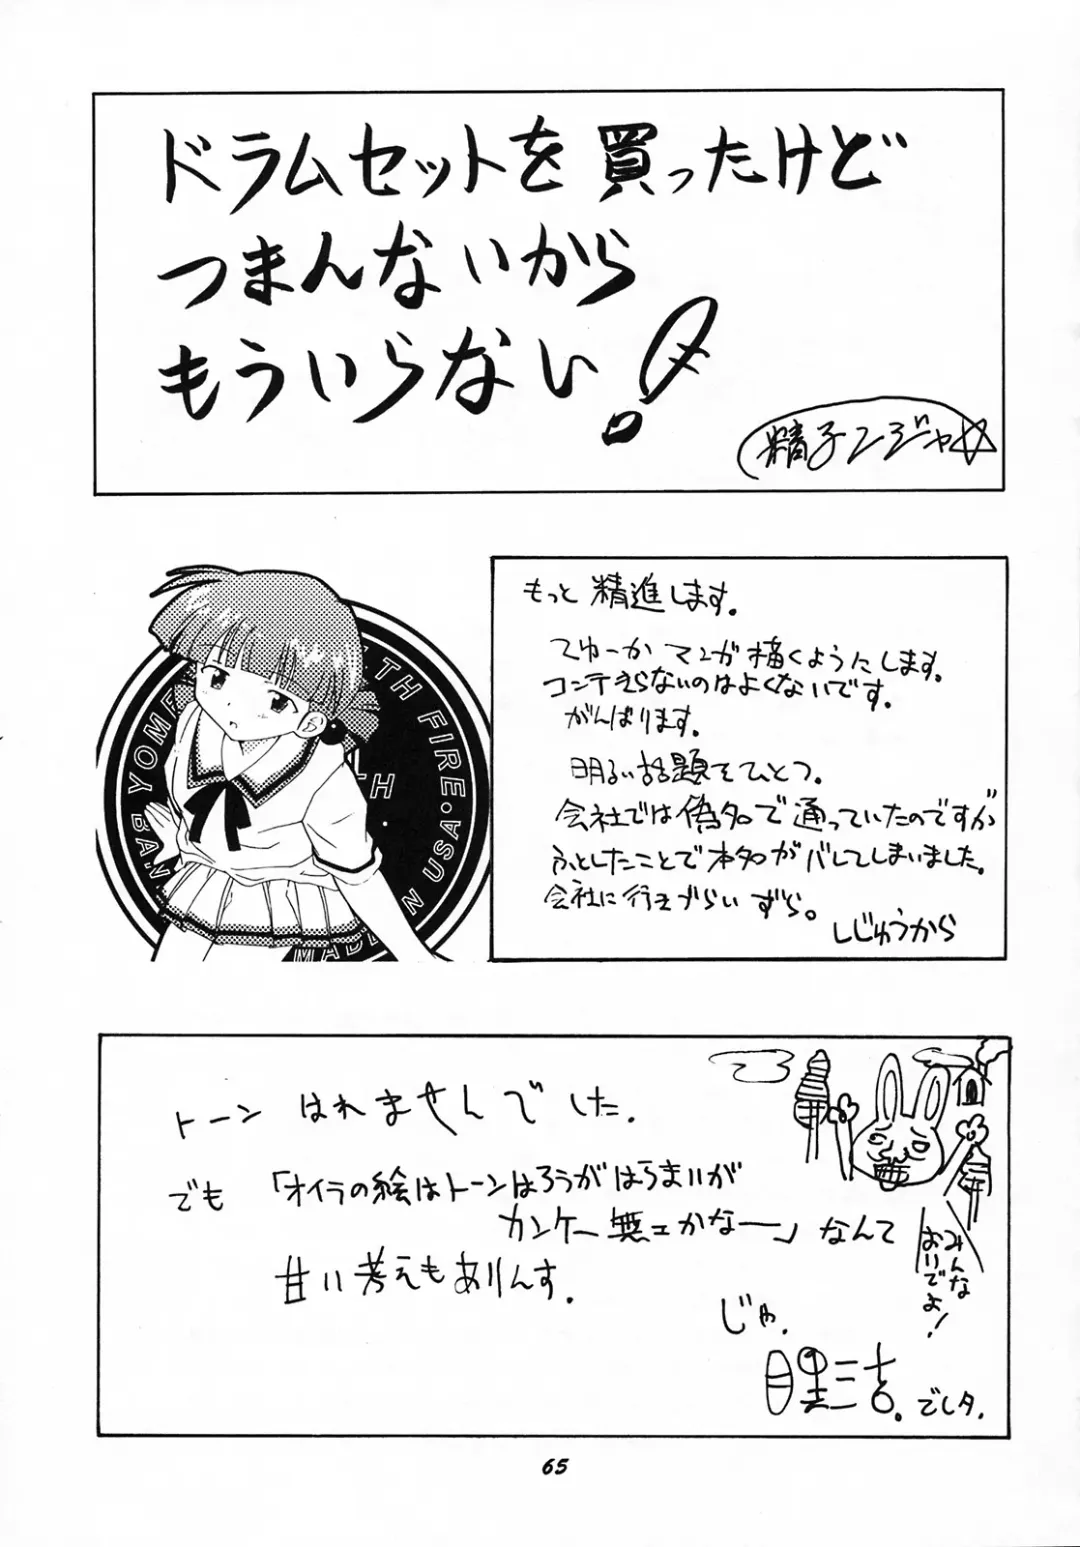 ドラムセットを買ったけど
つまんないから
もういらない!
精子ンジャ☆
もっと精進します。
てゆーかマンガ描くようにします。
コンテきらないのはよくないです。
がんばります。
明るい話題をひとつ。
会社では偽名で通っていたのですが
ふとしたことで本名がバレてしまいました。
会社に行きづらいずら。
しじゅうから
YOME
TH FIRE・
USA・
MADE
N
BA
トーンはれませんでした.
でも「オイラの絵はトーンはろうがはらまいが
カンケー無エかなー」なんて
甘い考えもありんす.
じゃ.
みんな
おいでよ!
三吉.でしタ.
65